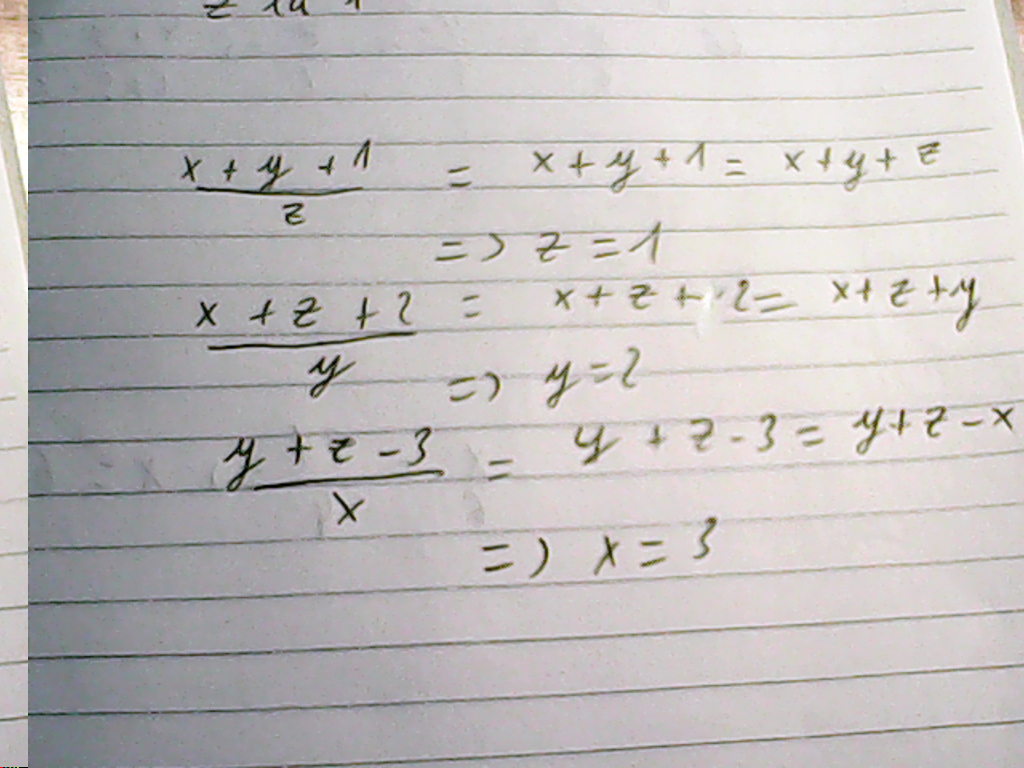 x + y + 1 / z = x + y + 1 = x + y + z
=> z = 1
x + z + 2 / y = x + z + 2 = x + z + y
=> y = 2
y + z - 3 / x = y + z - 3 = y + z - x
=> x = 3